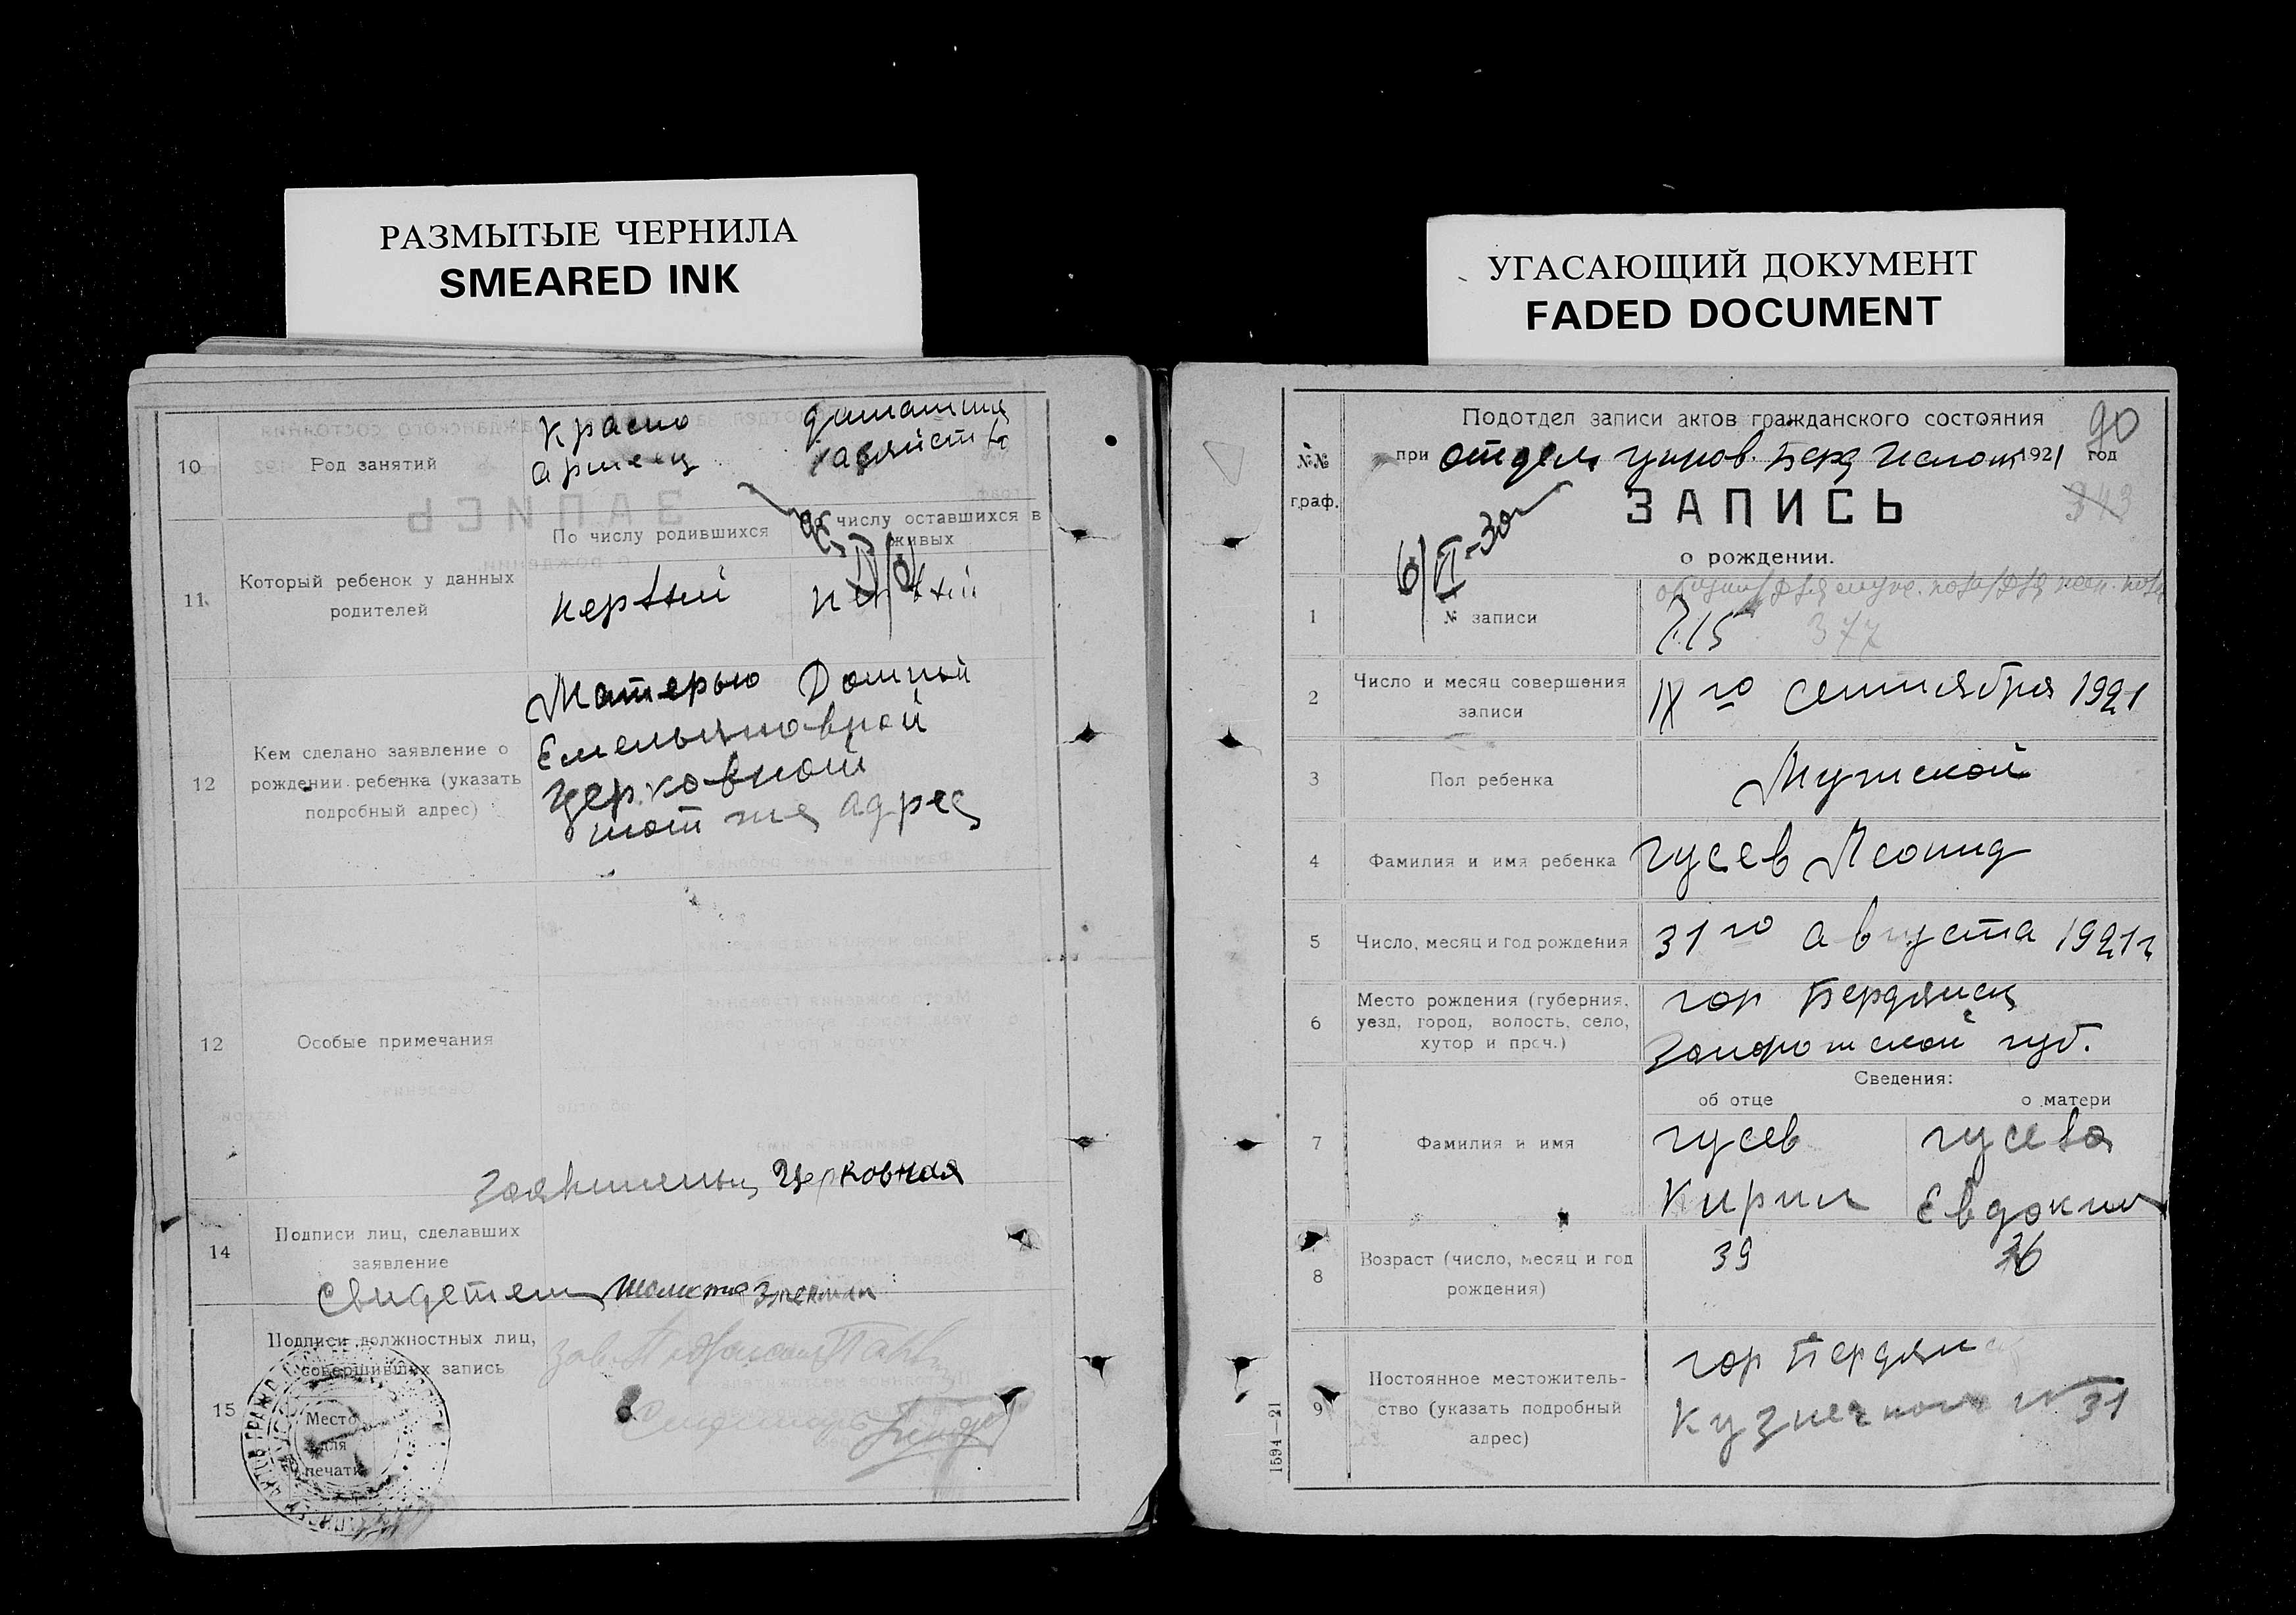 РАЗМЫТЫЕ ЧЕРНИЛА
SMEARED INK
10
Род занятий
Красно
армеец
домашнее
хозяйство
11
Который ребенок у данных
родителей
По числу родившихся
числу оставшихся в
живых
первый
12
Кем сделано заявление о
рождении ребенка (указать
подробный адрес)
Матерью
Емельяновной
Церковной
тот же адрес
12
Особые примечания
Церковная
14
Подписи лиц, сделавших
заявление
Свидетели
15
Подписи должностных лиц,
совершивших запись
Место
для
печати
УГАСАЮЩИЙ ДОКУМЕНТ
FADED DOCUMENT
90
Подотдел записи актов гражданского состояния
№№
граф.
при отдел. управ. Берд 1921 год
343
ЗАПИСЬ
о рождении.
6/II-30
1
№ записи
715
377
2
Число и месяц совершения
записи
го сентября 1921
3
Пол ребенка
Мужской
4
Фамилия и имя ребенка
Гусев Леонид
5
Число, месяц и год рождения
31 го августа 1921 г
6
Место рождения (губерния,
уезд, город, волость, село,
хутор и проч.)
гор Бердянск
Запорожской губ.
Сведения:
об отце
о матери
7
Фамилия и имя
Гусев
Кирил
Гусева
Евдокия
8
Возраст (число, месяц и год
рождения)
39
36
9
Постоянное местожитель-
ство (указать подробный
адрес)
гор Бердянск
Кузнечная № 31
1594—21